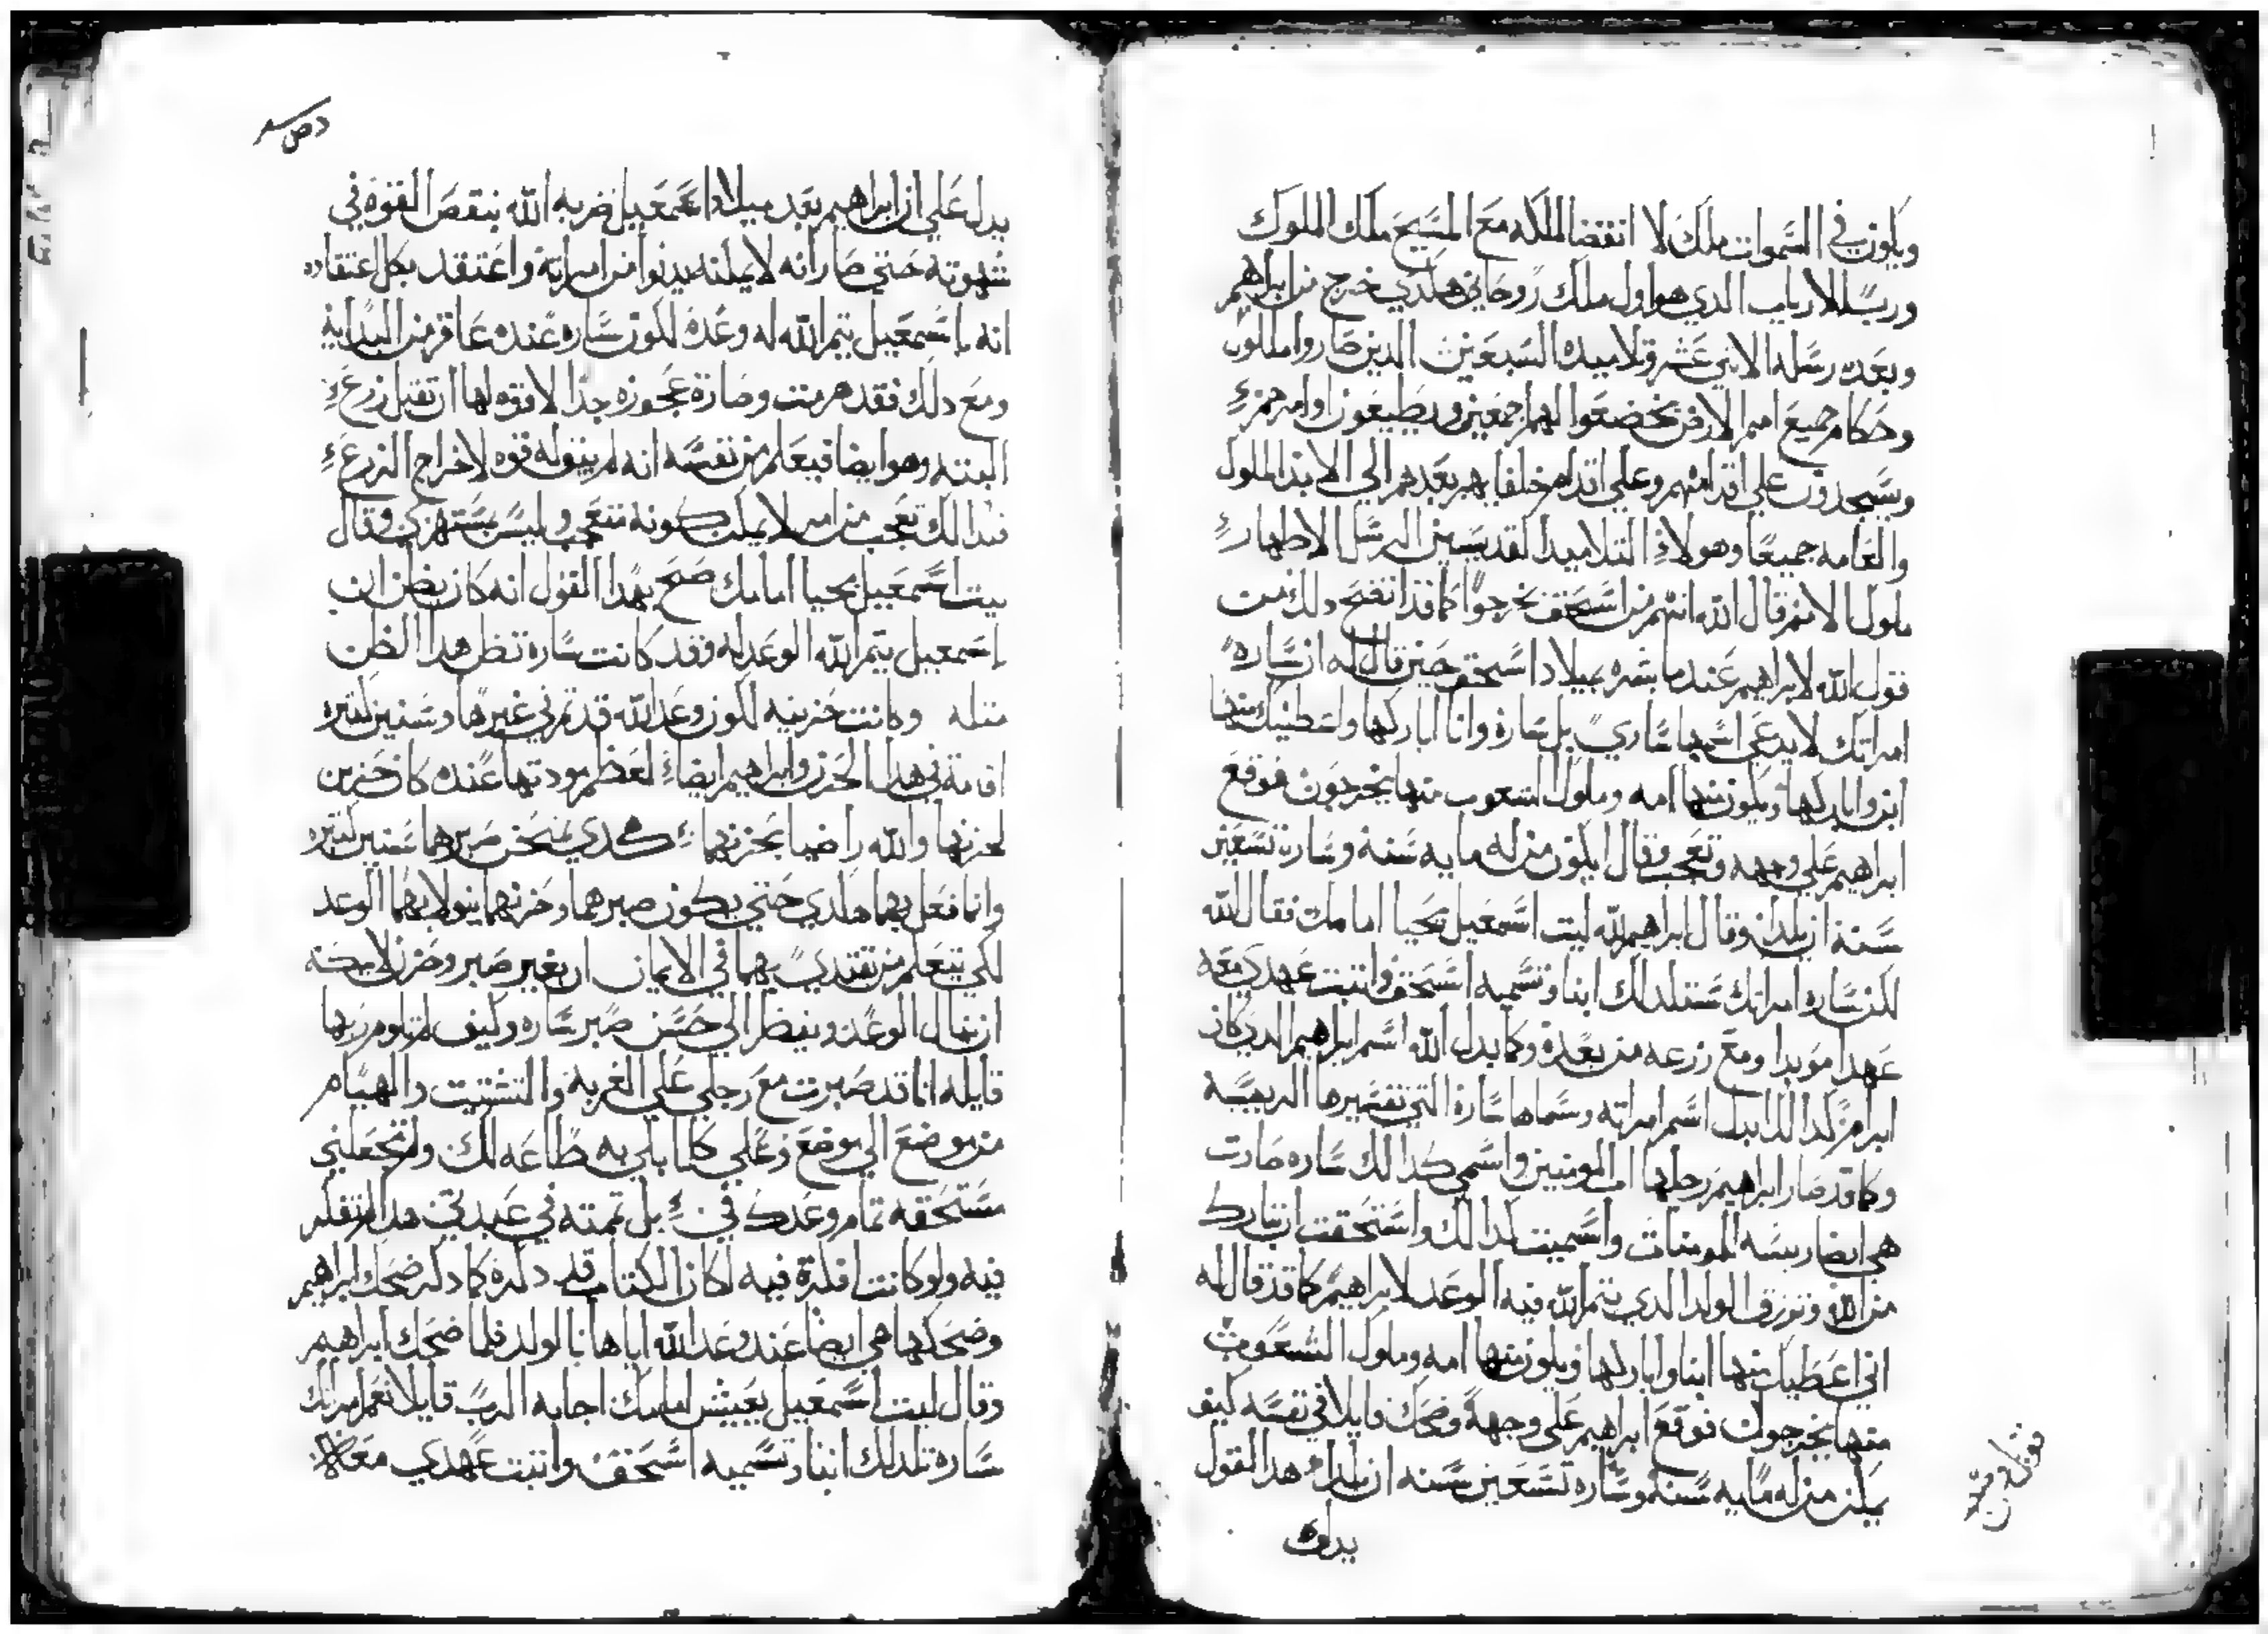 ويكون في السموات ملك لا انقضا لملكه مع المسيح ملك الملوك
ورب الارباب الدي هو اول ملك روحاني هكدي خرج من ابراهيم
وبعده رسله الاثني عشر وتلاميده السبعين الدين صاروا ملوك
وحكام جميع امم الارض يخضعوا لهم اجمعين ويطيعون اوامرهم
ويسجدون علي اقدامهم وعلي اقدام خلفايهم بعدهم الي الابد الملوك
والعامه جميعا وهولاء التلاميد القديسين الرسل الاطهار
ملوك الامم قال الله انهم من اسحق يخرجوا كما قد اتضح دلك من
قول الله لابراهيم عند ما بشره بميلاد اسحق حين قال له ان ساره
امراتك لا يدعي اسمها ساري بل ساره وانا اباركها واعطيك منها
ابن واباركها ويكون منها امه وملوك الشعوب منها يخرجون فوقع
ابراهيم علي وجهه وتعجب وقال ايكون من له مايه سنة وسارة تسعين
سنة ان يلدا وقال ابراهيم لله ليت اسمعيل يحيا امامك فقال الله
لكن ساره امراتك ستلد لك ابنا وتسميه اسحق واتبت عهدي معه
عهدا موبدا ومع زرعه من بعده وكما بدل الله اسم ابراهيم الدي كان
ابرام كدالك ابدل اسم امراته وسماها سارة التي تفسيرها الريسة
وكما قد صار ابراهيم رجلها اب المومنين واسمي كدالك ساره صارت
هي ايضا ريسه المومنات واسميت كدالك واستحقت ان تبارك
من الله وترزق الولد الدي يتم الله فيه الوعد لابراهيم كما قد قال له
اني اعطيك منها ابنا واباركها ويكون منها امه وملوك الشعوب
منها يخرجون فوقع ابراهيم علي وجهه وضحك قايلا في نفسه كيف
يمكن من له مايه سنه وساره تسعين سنه ان يلدا هدا القول
يدل
يدل علي ان ابراهيم بعد ميلاد اسمعيل ضربه الله بنقص القوه في
شهوته حتي صار انه لا يمكنه يدنوا من امراته واعتقد بكل اعتقاده
انه باسمعيل يتم الله له وعده لكون ساره عنده عاقر من البداية
ومع دلك فقد هرمت وصارة عجوزه جدا لا قوه لها ان تقبل زرع
البته وهو ايضا فيعلم من نفسه انه لم يبق له قوه لاخراج الزرع
فبدالك تعجب من امر لا يمكن كونه تعجب وليس يستهزي وقال
ليت اسمعيل يحيا امامك صح بهدا القول انه كان يظن ان
باسمعيل يتم الله الوعد له وقد كانت سارة تظن هدا الظن
متله وكانت حزينه لكون وعد الله قد تم في غيرها وسنين كتيره
اقامة في هدا الحزن وابراهيم ايضا لعظم مودتها عنده كان حزين
لحزنها والله راضيا بحزنهما كدي يمتحن صبرهما سنين كتيره
وانما فعل بهما هكدي حتي يكون صبرهما وحزنهما ينولا بهما الوعد
لكي يتعلم من يقتدي بهما في الايمان ان بغير صبر وحزن لا يمكنه
ان ينال الوعد وينظر الي حسن صبر ساره وكيف لم تلوم ربها
قايله انا قد صبرت مع رجلي علي الغربة والتشتيت والهيام
من موضع الي موضع وعلي كلما بلي به طاعه لك ولم تجعلني
مستحقه تمام وعدك في بل تممته في عبدتي هدا لم تفكر
فيه ولو كانت افكرة فيه لكان الكتاب قد دكره كما دكر ضحك ابراهيم
وضحكها هي ايضا عند وعد الله اياها بالولد فلما ضحك ابراهيم
وقال ليت اسمعيل يعيش امامك اجابه الرب قايلا نعم امراتك
سارة تلد لك ابنا وتسميه اسحق واتبت عهدي معه